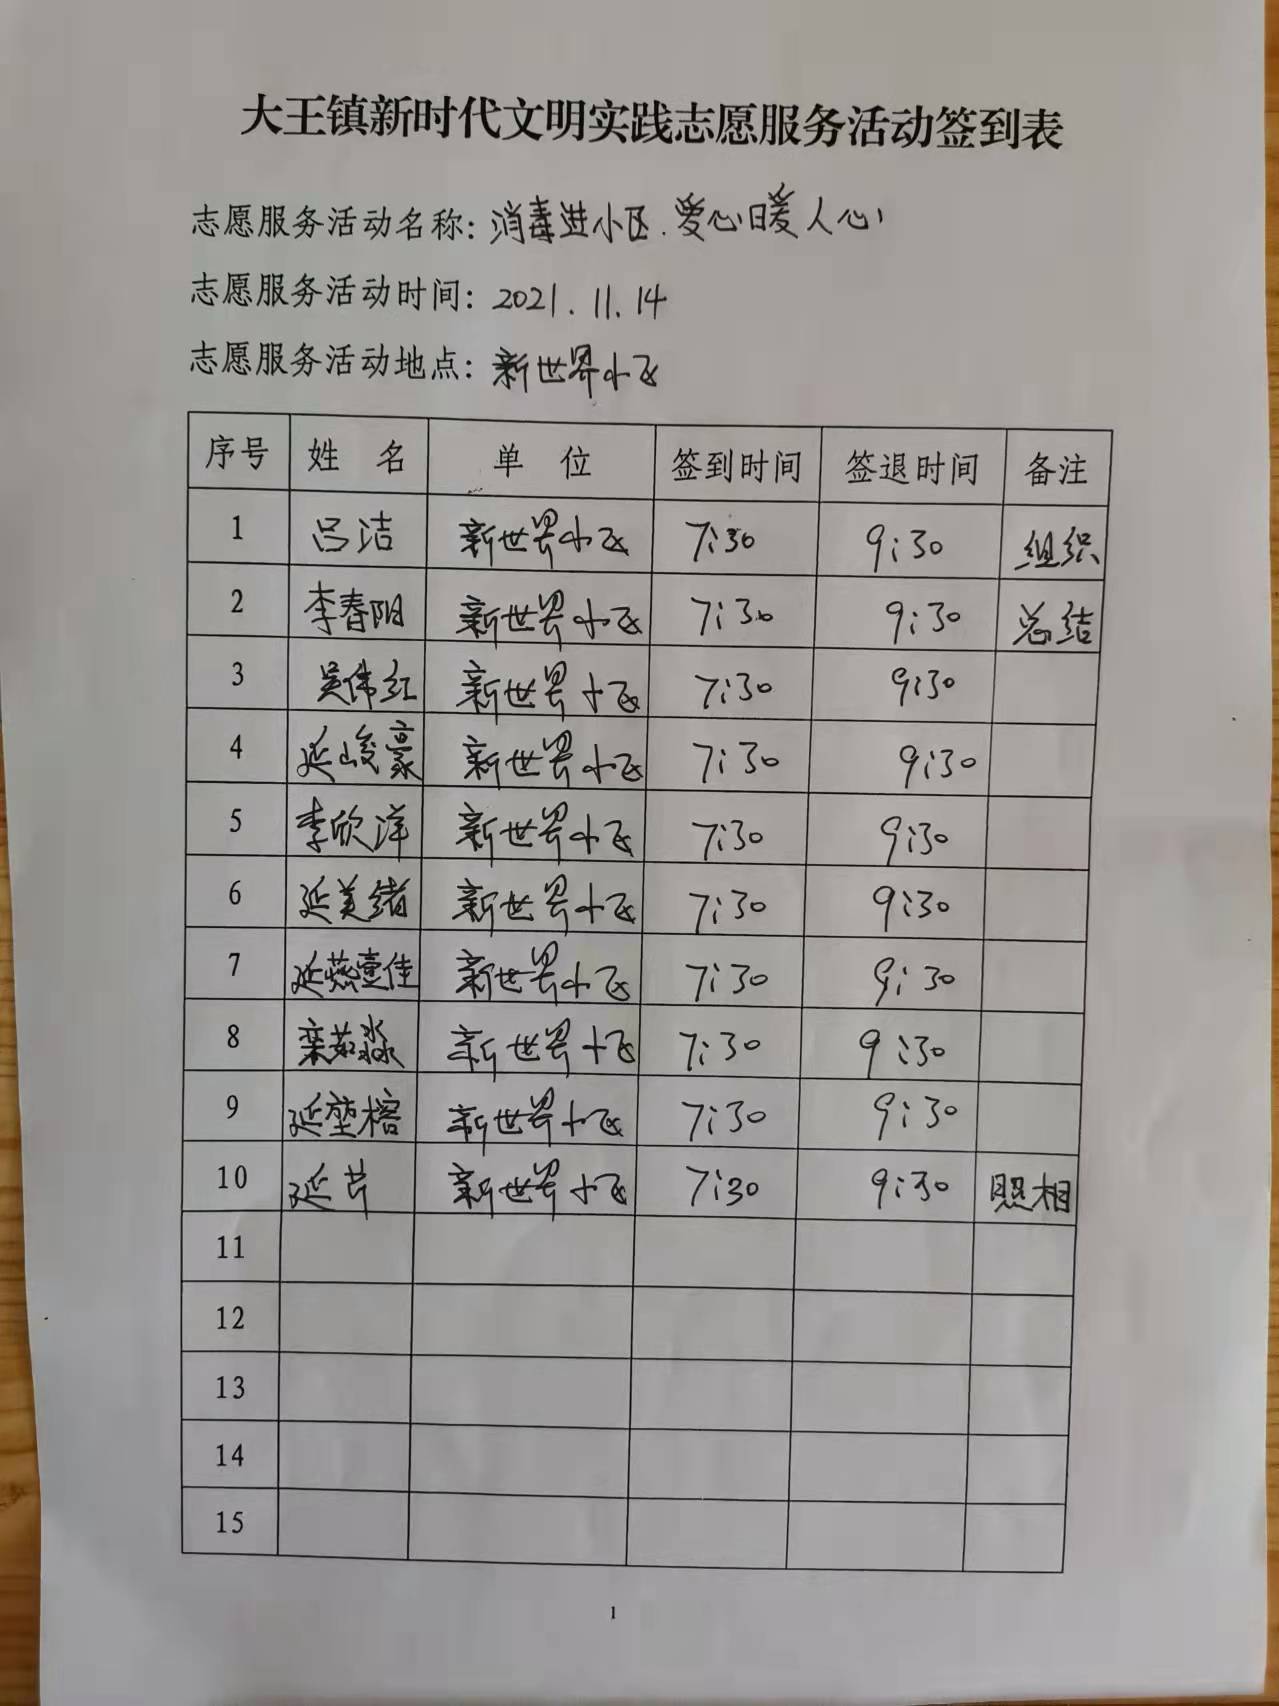 大王镇新时代文明实践志愿服务活动签到表
志愿服务活动名称：消毒进小区.爱心暖人心
志愿服务活动时间：2021.11.14
志愿服务活动地点：新世界小区
序号 姓名 单位 签到时间 签退时间 备注
1 吕洁 新世界小区 7:30 9:30 组织
2 李春阳 新世界小区 7:30 9:30 总结
3 吴伟红 新世界小区 7:30 9:30
4 延峻豪 新世界小区 7:30 9:30
5 李欣洋 新世界小区 7:30 9:30
6 延美绪 新世界小区 7:30 9:30
7 延燕壹佳 新世界小区 7:30 9:30
8 栾茹淼 新世界小区 7:30 9:30
9 延堃榕 新世界小区 7:30 9:30
10 延芹 新世界小区 7:30 9:30 照相
11
12
13
14
15
1